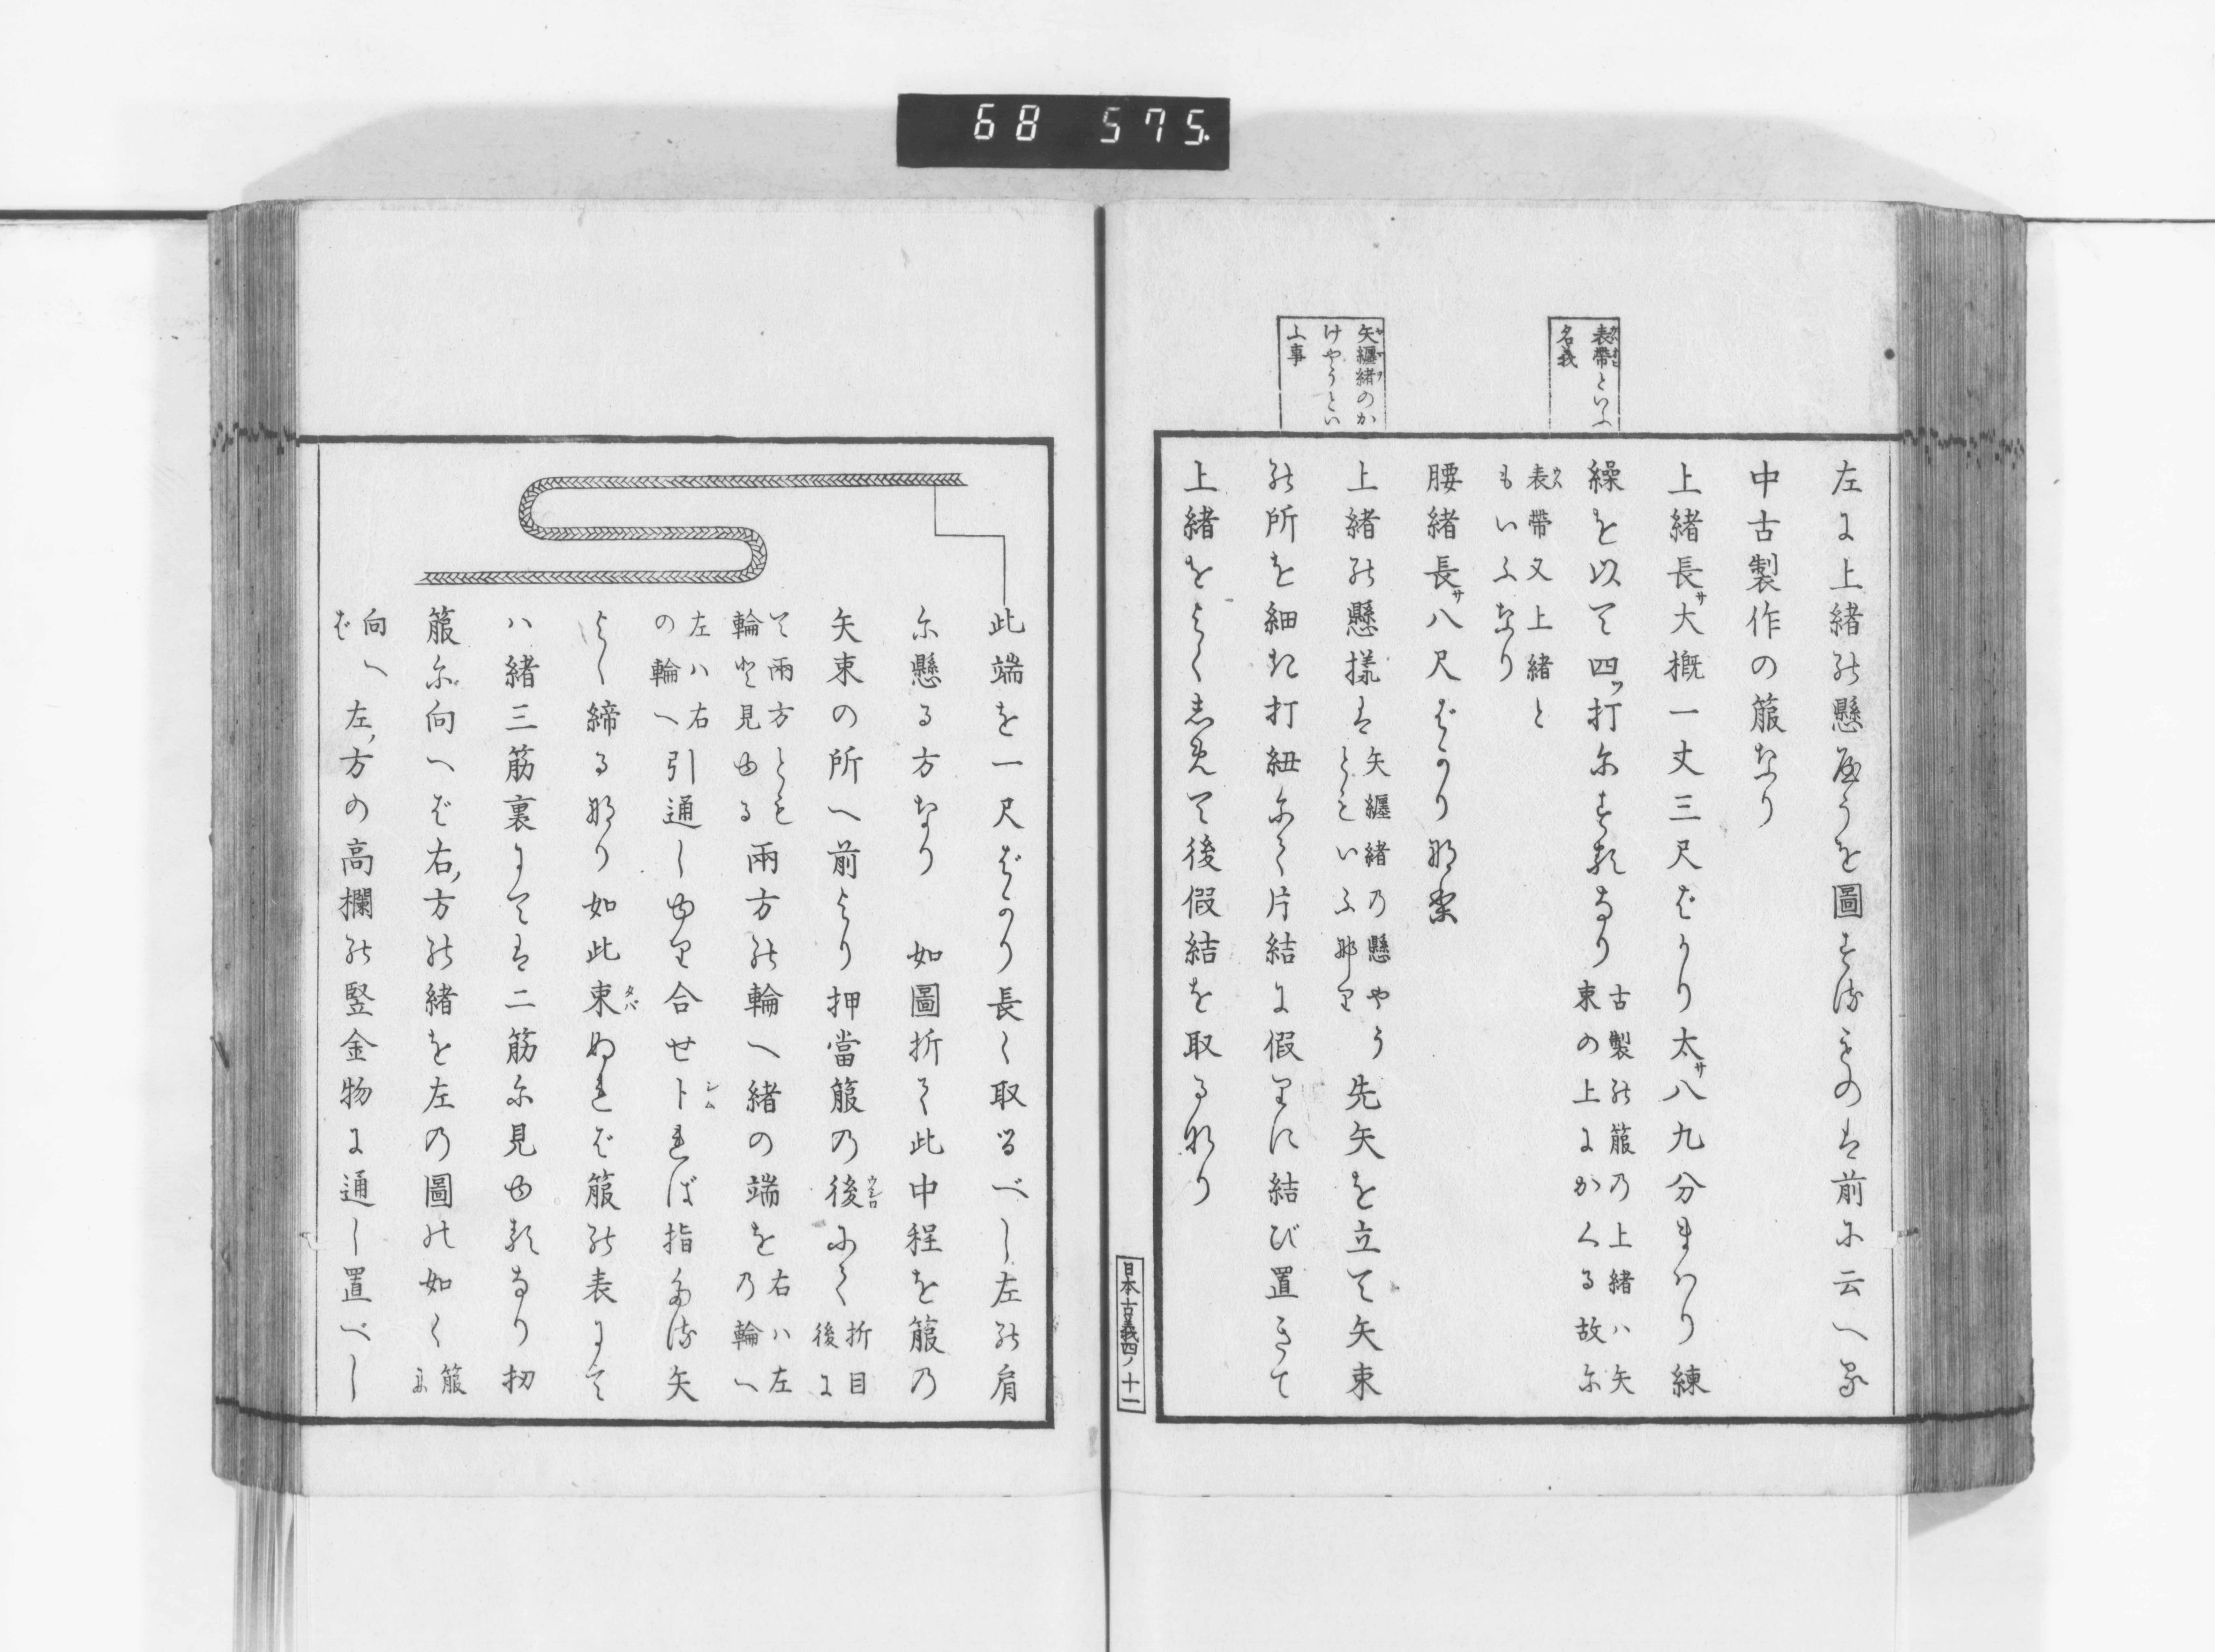 68 575.
表帶といふ
名義
矢纒緒のか
けやうとい
ふ事
左に上緒の懸やうを圖するものは前に云へる
中古製作の箙なり
上緒長サ大概一丈三尺ばかり太サ八九分まはり練
繰を以て四ツ打にするなり古製の箙の上緒ハ矢
束の上にかくる故に
表帶又上緒と
もいふなり
腰緒長サ八尺ばかりなり
上緒の懸様は矢纒緒の懸やう
ともいふなり先矢を立て矢束
の所を細き打紐にて片結に假りに結び置きて
上緒をよくしめて後假結を取るなり
日本古義四ノ十一
此端を一尺ばかり長く取るべし左の肩
に懸る方なり 如圖折て此中程を箙の
矢束の所へ前より押當箙の後ウシロにて折目
後に
て兩方とも
輪と見ゆる兩方の輪へ緒の端を右ハ左
の輪へ
左ハ右
の輪へ引通しゆり合せトシムれば指たる矢
よく締るなり如此束タバぬれば箙の表にて
ハ緒三筋裏にては二筋に見ゆるなり扨
箙に向へば右ノ方の緒を左の圖の如く箙
に
向へ
ば左ノ方の高欄の竪金物に通し置べし